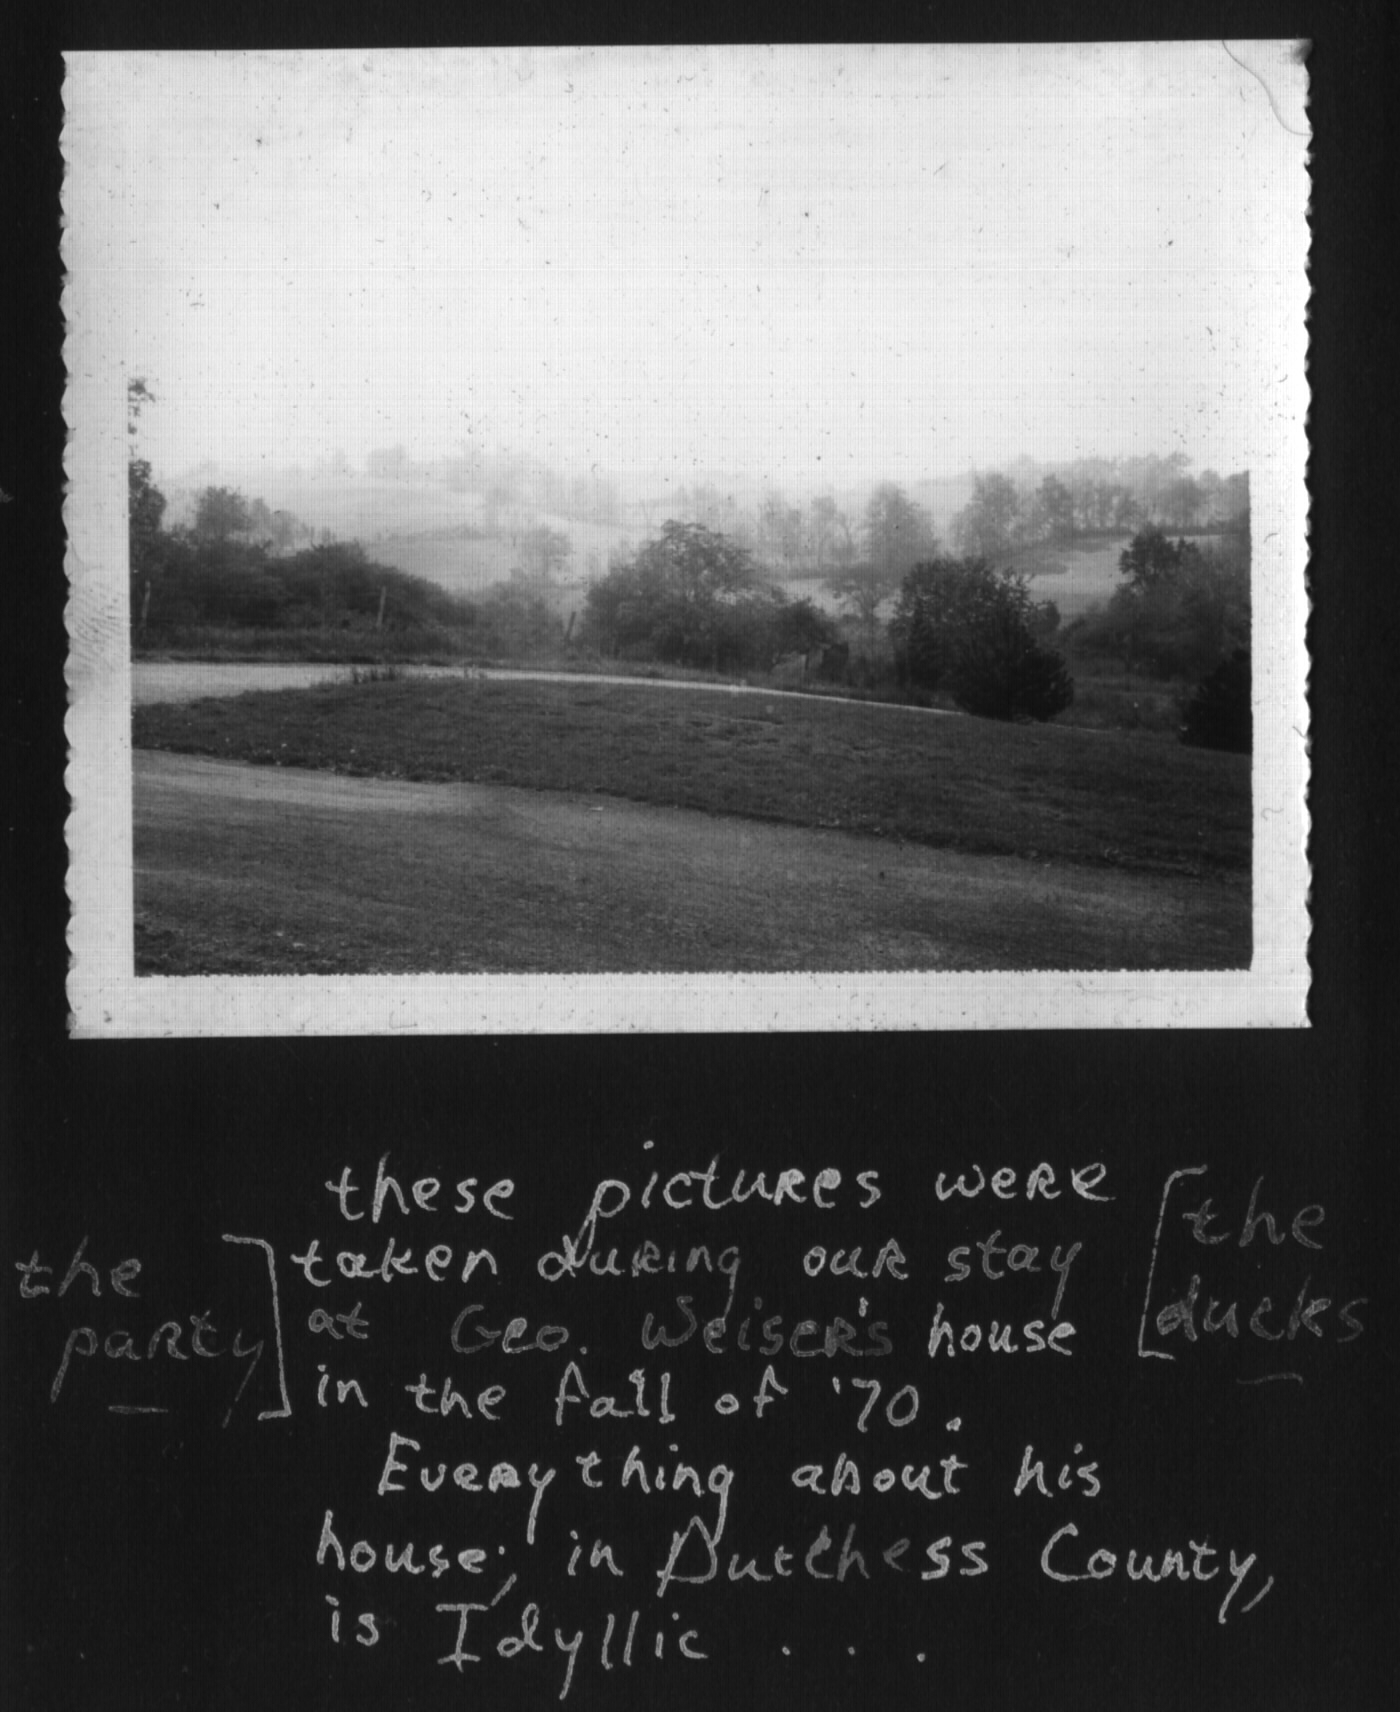 these pictures were
taken during our stay
at Geo. Weiser's house
in the fall of '70.
Everything about his
house; in Dutchess County,
is Idyllic . . .
the
party]
[the
ducks